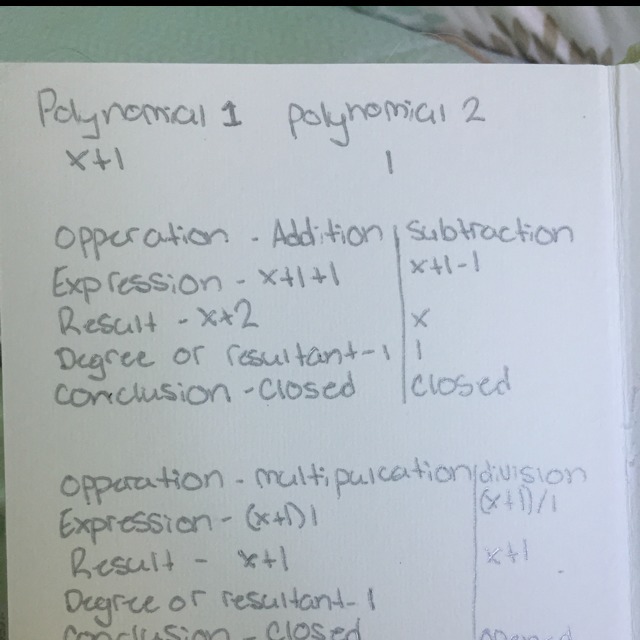 Polynomial 1 polynomial 2
x+1 1
Opperation - Addition | Subtraction
Expression - x+1+1 | x+1-1
Result - x+2 | x
Degree or resultant - 1 | 1
Conclusion - Closed | closed
Opparation - multipulcation | division
Expression - (x+1)1 | (x+1)/1
Result - x+1 | x+1
Degree or resultant - 1
Conclusion - Closed